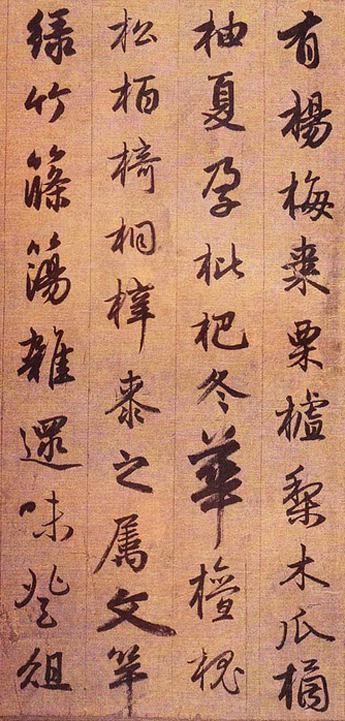 有楊梅棗栗櫨梨木瓜橘
柚夏孕枇杷冬華檀槐
松栢椅桐梓桼之属文竿
緑竹篠簜雜還味登俎